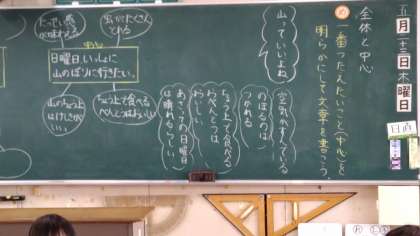 五月十三日木曜日
日直
全体と中心
め 一番つたえたいこと(中心)を
明らかにして文章を書こう。
山っていいよね
空気がすんでいる
のぼるのは
つかれる
ちょう上で食べる
おべんとうは
おいしい
あさっての日曜日
は晴れるらしい
虫がたくさん
とれる
たっせい感
が味わえる
中心
日曜日いっしょに
山のぼりに行きたい。
ちょう上で食べる
べんとうはおいしい
山のちょう上
はけしきが
いい。